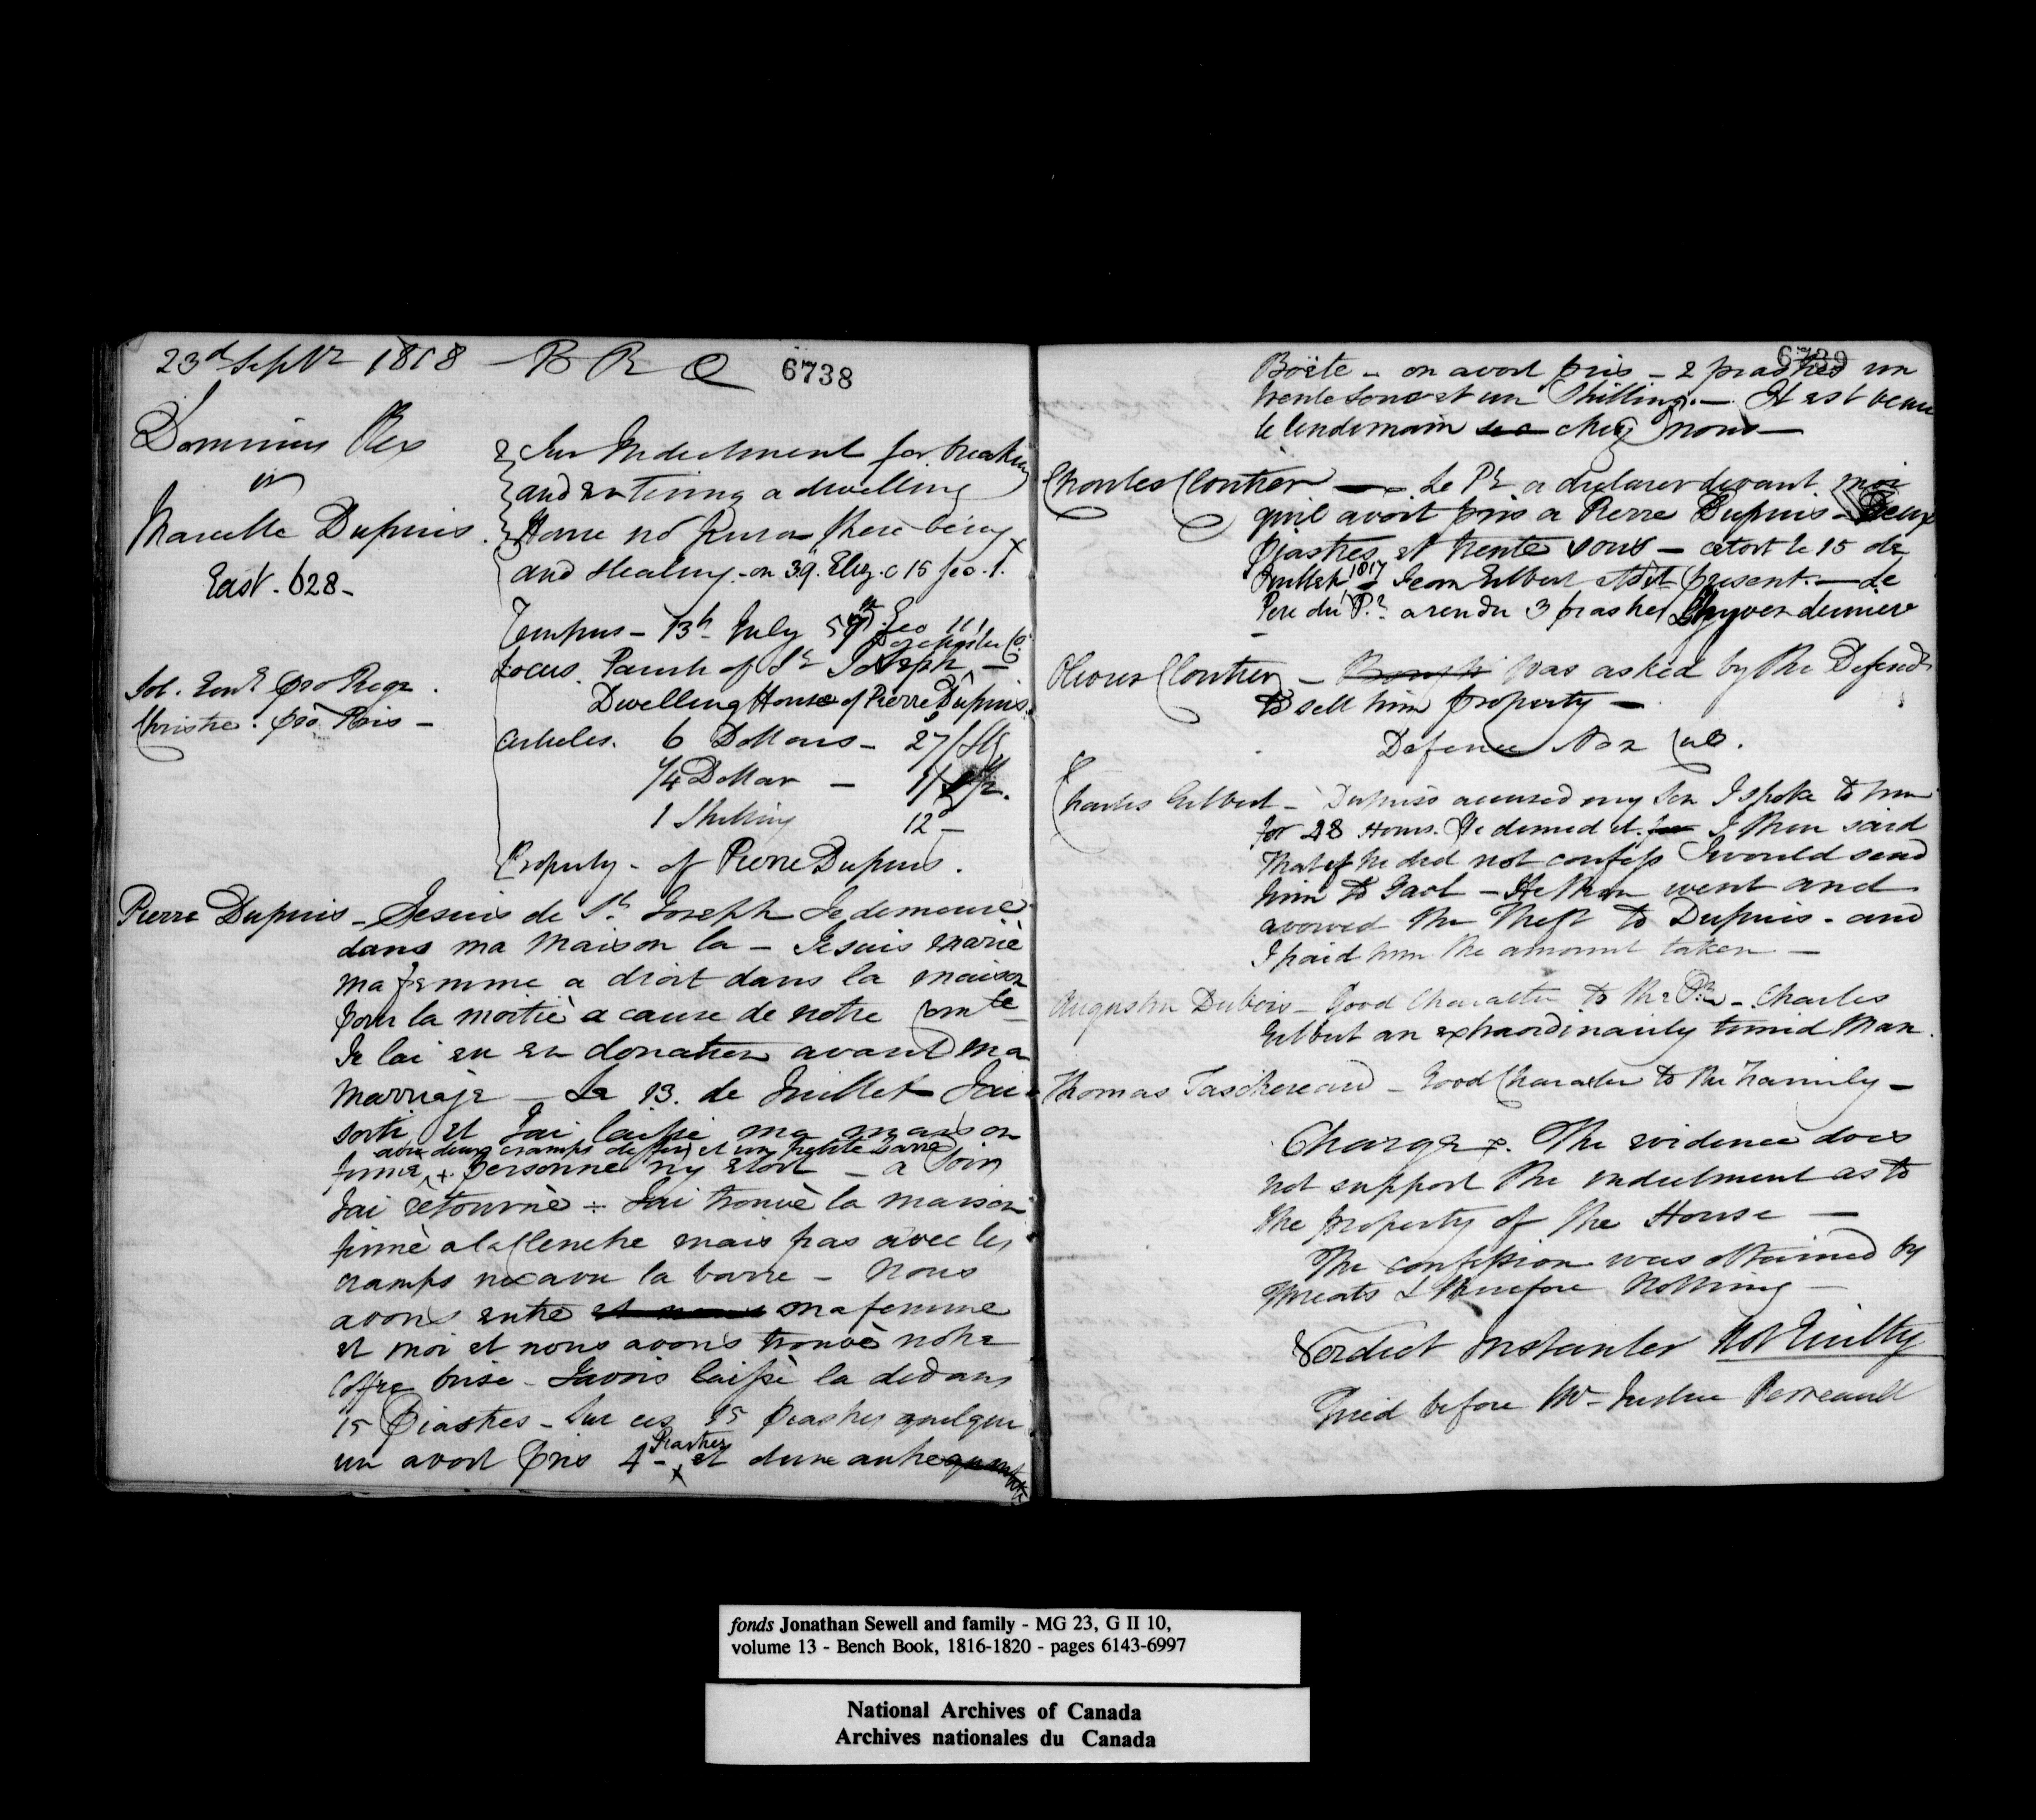 23d Septr 1818 - B R Q 6738
Dominus Rex
vs
Marcelle Dupuis.
East. 628-
Sol. Genl pro Rege.
Christie. pro Pris -
Indictment for breaking
and entering a dwelling
House no person there being
and stealing - on 39. Eliz. c 15 sec. 1.
Tempus - 13h July 57th Geo III
Dorchester Co.
Locus. Parish of St Joseph -
Dwelling House of Pierre Dupuis.
Articles. 6 Dollars - 27/ Stg
1/4 Dollar - 1/
1 Shilling 12d -
Property - of Pierre Dupuis.
Pierre Dupuis - Je suis de St. Joseph Je demeure
dans ma Maison la - Je suis marié
ma femme a droit dans la maison
pour la moitié a cause de notre Comte
Je lai eu en donation avant ma
Marriage - Le 13. de Juillet Jai
sorti et Jai laissé ma maison
avec deux cramps de fer et un petite barre
fermé + personne ny etoit - a Soir
Jai retourné ÷ Jai trouvé la maison
fermé a la Clenche mais pas avec les
cramps ne avec la barre - Nous
avons entré et nous ma femme
et moi et nous avons trouvé notre
Coffre brisé - Javois laissé la dedans
15 Piastres - Sur ces 15 Piastres quelque
un avoit pris 4 - Piastres et dune autre
6739
Boëte - on avoit pris - 2 piastres un
trente Sous et un Shilling. - Il est venu
le lendemain chez nous -
Charles Cloutier - Le Pr a declarer devant moi
quil avoit pris a Pierre Dupuis - Deux
Piastres et trente sous - cetoit le 15 de
Juillet 1817 - Jean Gilbert etoit present. - Le
Pere du Pr. a rendu 3 piastres Lhyver derniere
Olivier Cloutier - Was asked by the Defendt
to sell him property -
Defence
Charles Gilbert - Dupuis accused my Son I spoke to him
for 28 Hours. He denied it. I then said
that if he did not confess I would send
him to Gaol - He then went and
avowed the Theft to Dupuis - and
I paid him the amount taken -
Augustin Dubois - Good Character to the Pr - Charles
Gilbert an extraordinarily timid Man.
Thomas Taschereau - Good Character to the Family -
Charge. The evidence does
not support the indictment as to
the property of the House -
The confession was obtained by
threats & therefore Nothing -
Verdict Instanter Not Guilty
Tried before Mr Justice Perreault
fonds Jonathan Sewell and family - MG 23, G II 10,
volume 13 - Bench Book, 1816-1820 - pages 6143-6997
National Archives of Canada
Archives nationales du Canada